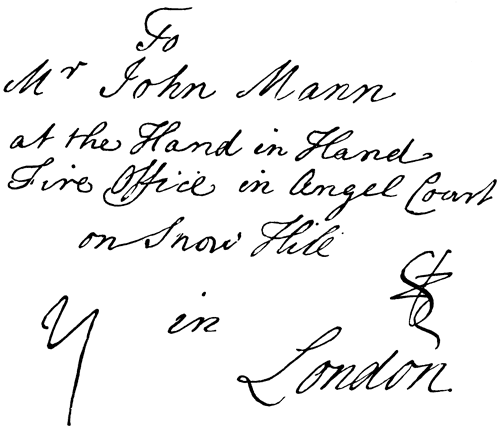 To
Mr John Mann
at the Hand in Hand
Fire Office in Angel Court
on Snow Hill
in
London.